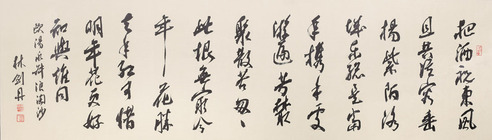 把酒祝東風
且共從容垂
楊紫陌洛
城東總是當
年攜手處
遊遍芳叢
聚散苦匆匆
此恨無窮今
年花勝
去年紅可惜
明年花更好
知與誰同
歐陽永叔浪淘沙
林劍丹